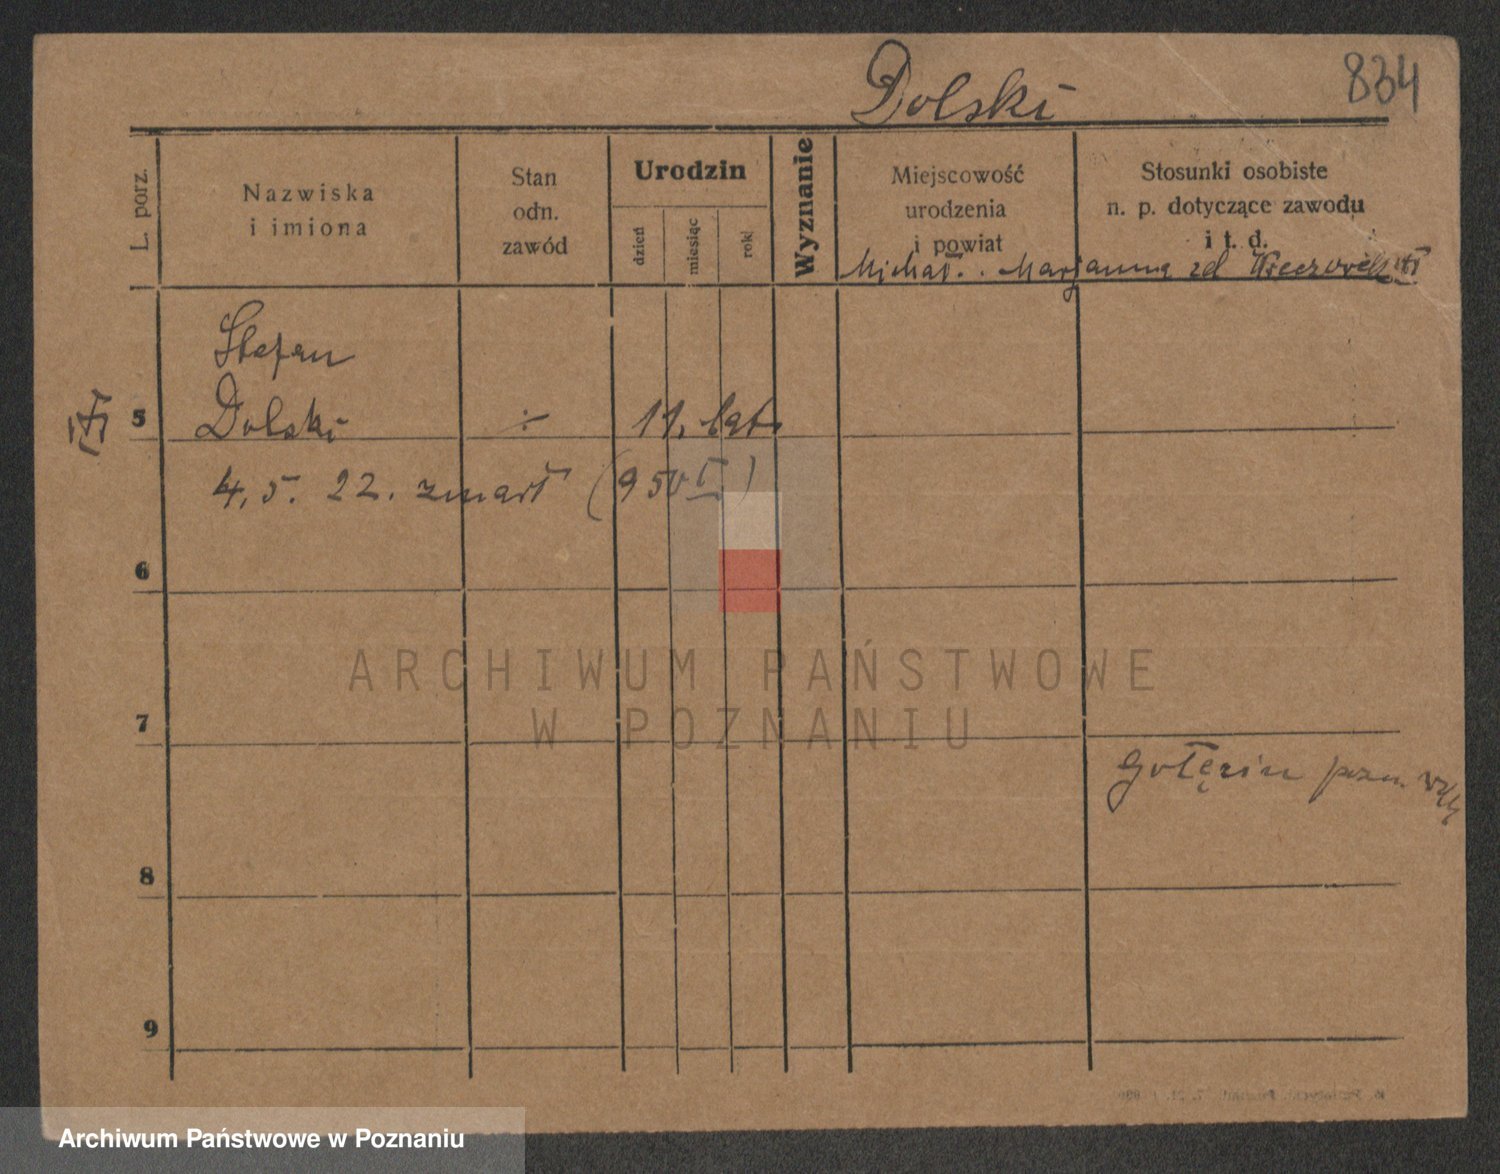 Dolski
834
L. porz.
Nazwiska
i imiona
Stan
odn.
zawód
Urodzin
dzień
miesiąc
rok
Wyznanie
Miejscowość
urodzenia
i powiat
Stosunki osobiste
n. p. dotyczące zawodu
i t. d.
Michał. Marjanna zd
Stefan
5 Dolski ÷ 11. lat.
4.5. 22. zmarł (950 I)
6
ARCHIWUM PAŃSTWOWE
W POZNANIU
7
Gołęzin pozn.
8
9
Archiwum Państwowe w Poznaniu